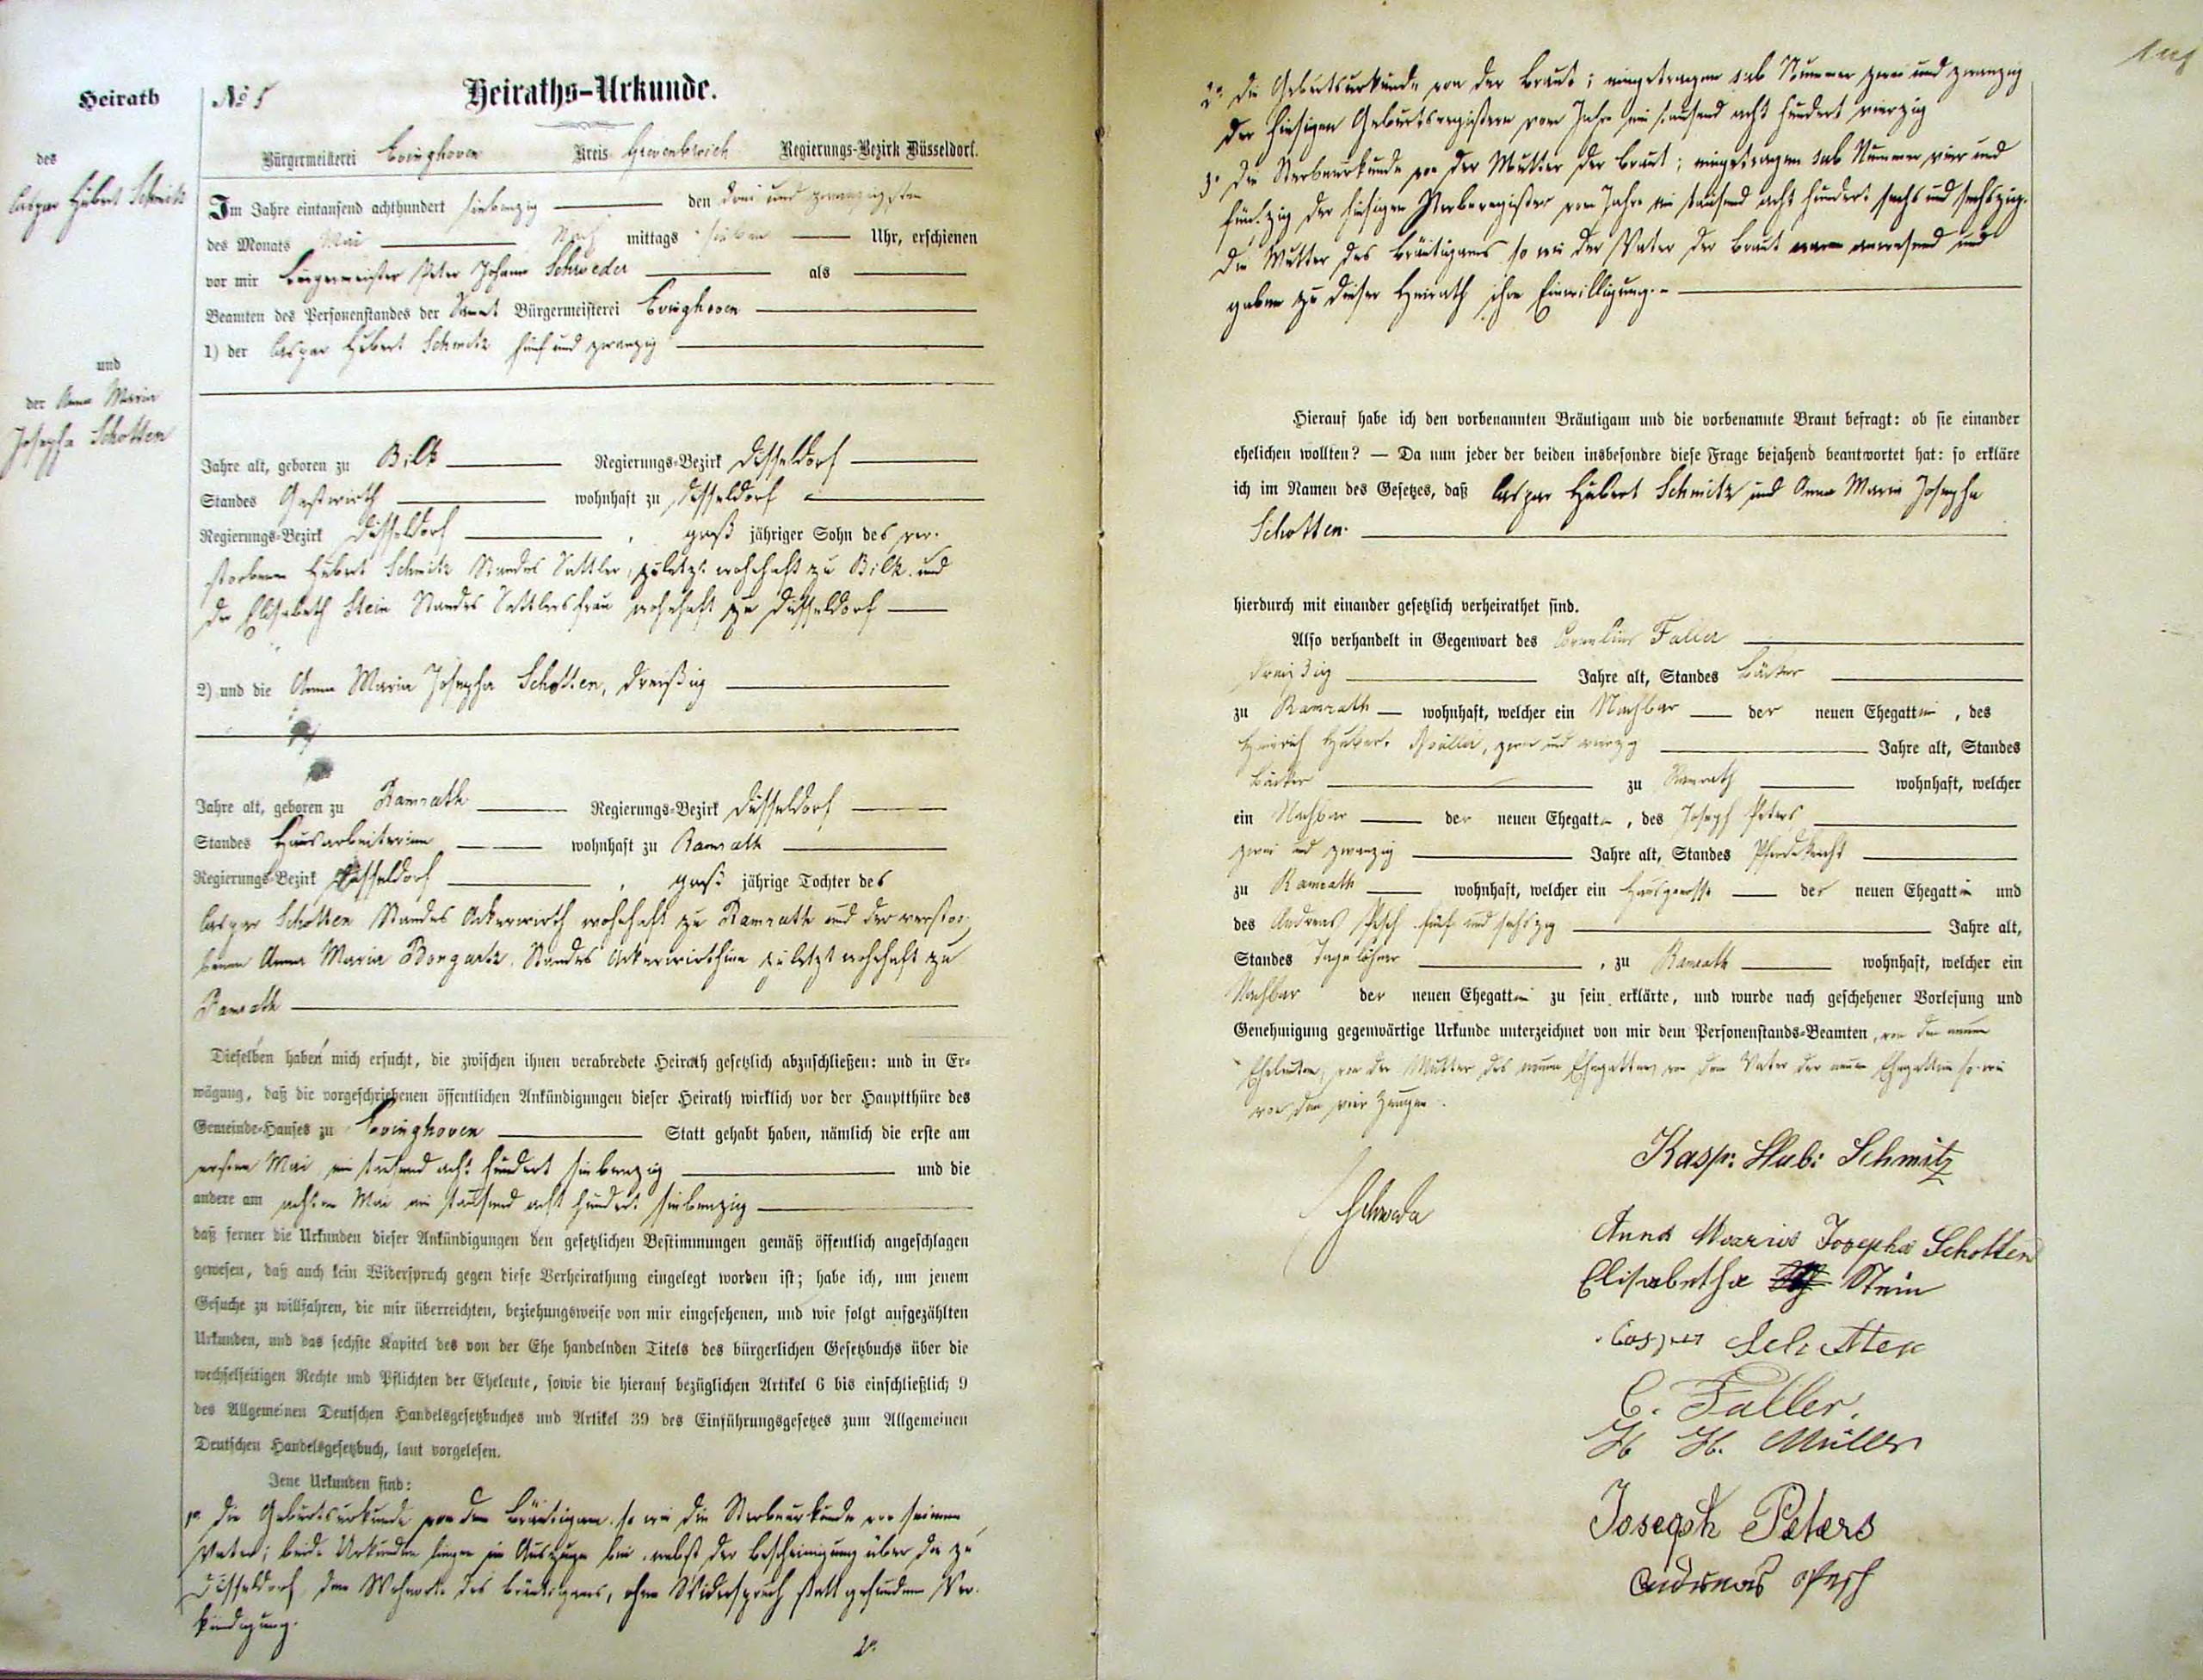 Heirath
des
Caspar Hubert Schmitz
und
der Anna Maria
Josepha Schotten
No 5
Heiraths-Urkunde.
Bürgermeisterei Evinghoven Kreis Grevenbroich Regierungs-Bezirk Düsseldorf.
Im Jahre eintausend achthundert siebenzig den drei und zwanzigsten
des Monats Mai Nach mittags sieben Uhr, erschienen
vor mir Bürgermeister Peter Johann Schweder als
Beamten des Personenstandes der Samt Bürgermeisterei Evinghoven
1) der Caspar Hubert Schmitz fünf und zwanzig
Jahre alt, geboren zu Bilk Regierungs-Bezirk Düsseldorf
Standes Gastwirth wohnhaft zu Düsseldorf
Regierungs-Bezirk Düsseldorf, groß jähriger Sohn des ver-
storbenen Hubert Schmitz Standes Sattler, zuletzt wohnhaft zu Bilk und
der Elisabeth Stein Standes Sattlersfrau wohnhaft zu Düsseldorf
2) und die Anna Maria Josepha Schotten, dreißig
Jahre alt, geboren zu Ramrath Regierungs-Bezirk Düsseldorf
Standes Hausarbeiterinn wohnhaft zu Ramrath
Regierungs-Bezirk Düsseldorf, groß jährige Tochter des
Caspar Schotten Standes Ackerwirth wohnhaft zu Ramrath und der verstor-
benen Anna Maria Bongartz Standes Ackerwirthinn zuletzt wohnhaft zu
Ramrath
Dieselben haben mich ersucht, die zwischen ihnen verabredete Heirath gesetzlich abzuschließen: und in Er-
wägung, daß die vorgeschriebenen öffentlichen Ankündigungen dieser Heirath wirklich vor der Hauptthüre des
Gemeinde-Hauses zu Evinghoven Statt gehabt haben, nämlich die erste am
ersten Mai ein tausend acht hundert siebenzig und die
andere am achten Mai ein tausend acht hundert siebenzig
daß ferner die Urkunden dieser Ankündigungen den gesetzlichen Bestimmungen gemäß öffentlich angeschlagen
gewesen, daß auch kein Widerspruch gegen diese Verheirathung eingelegt worden ist; habe ich, um jenem
Gesuche zu willfahren, die mir überreichten, beziehungsweise von mir eingesehenen, und wie folgt aufgezählten
Urkunden, und das sechste Kapitel des von der Ehe handelnden Titels des bürgerlichen Gesetzbuchs über die
wechselseitigen Rechte und Pflichten der Eheleute, sowie die hierauf bezüglichen Artikel 6 bis einschließlich 9
des Allgemeinen Deutschen Handelsgesetzbuches und Artikel 39 des Einführungsgesetzes zum Allgemeinen
Deutschen Handelsgesetzbuch, laut vorgelesen.
Jene Urkunden sind:
1o die Geburtsurkunde von dem Bräutigam so wie die Sterbeurkunde von seinem
Vater; beide Urkunden liegen im Auszuge bei nebst der Bescheinigung über die zu
Düsseldorf, dem Wohnorte des Bräutigams, ohne Widerspruch statt gefundene Ver-
kündigung.
2o
2o die Geburtsurkunde von der Braut; eingetragen sub Nummer zwei und zwanzig
der hiesigen Geburtsregistern vom Jahre ein tausend acht hundert vierzig
3o die Sterbeurkunde von der Mutter der Braut; eingetragen sub Nummer vier und
fünfzig der hiesigen Sterberegister vom Jahre ein tausend acht hundert sechs und sechszig.
Die Mutter des Bräutigams so wie der Vater der Braut waren anwesend und
gaben zu dieser Heirath ihre Einwilligung.-
Hierauf habe ich den vorbenannten Bräutigam und die vorbenannte Braut befragt: ob sie einander
ehelichen wollten? — Da nun jeder der beiden insbesondre diese Frage bejahend beantwortet hat: so erkläre
ich im Namen des Gesetzes, daß Caspar Hubert Schmitz und Anna Maria Josepha
Schotten
hierdurch mit einander gesetzlich verheirathet sind.
Also verhandelt in Gegenwart des Cornelius Faller
dreißig Jahre alt, Standes Bäcker
zu Ramrath wohnhaft, welcher ein Nachbar der neuen Ehegattin, des
Heinrich Hubert Müller, zwei und vierzig Jahre alt, Standes
Bäcker zu Ramrath wohnhaft, welcher
ein Nachbar der neuen Ehegattin, des Joseph Peters
zwei und zwanzig Jahre alt, Standes Pferdeknecht
zu Ramrath wohnhaft, welcher ein Hausgenosse der neuen Ehegattin und
des Andreas Pesch fünf und sechszig Jahre alt,
Standes Tagelöhner, zu Ramrath wohnhaft, welcher ein
Nachbar der neuen Ehegattin zu sein erklärte, und wurde nach geschehener Vorlesung und
Genehmigung gegenwärtige Urkunde unterzeichnet von mir dem Personenstands-Beamten, von den neuen
Eheleuten, von der Mutter des neuen Ehegatten, von dem Vater der neuen Ehegattin so wie
von den vier Zeugen.
Kasp: Hub: Schmitz
Schweder
Anna Maria Josepha Schotten
Elisabetha Stein
Casper Schotten
C. Faller.
H. H. Müller
Joseph Peters
Andreas Pesch